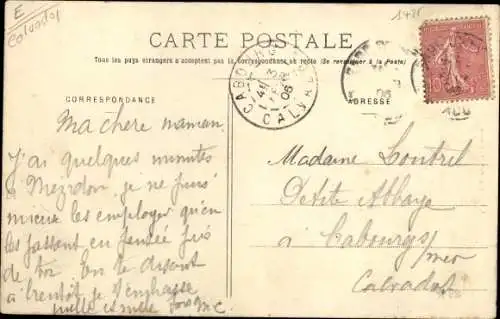 E
Calvados
1425
CARTE POSTALE
Tous les pays étrangers n'acceptent pas la correspondance au recto (Se renseigner à la Poste)
CORRESPONDANCE
ADRESSE
CABOURG
CALVADOS
Ma chère maman
J'ai quelques minutes
à Mezidon je ne puis
mieux les employer qu'en
les passant en pensée près
de toi En te disant
à bientôt je t'embrasse
mille et mille fois
Madame Loutrel
Petite Abbaye
à Cabourg s/
mer
Calvados